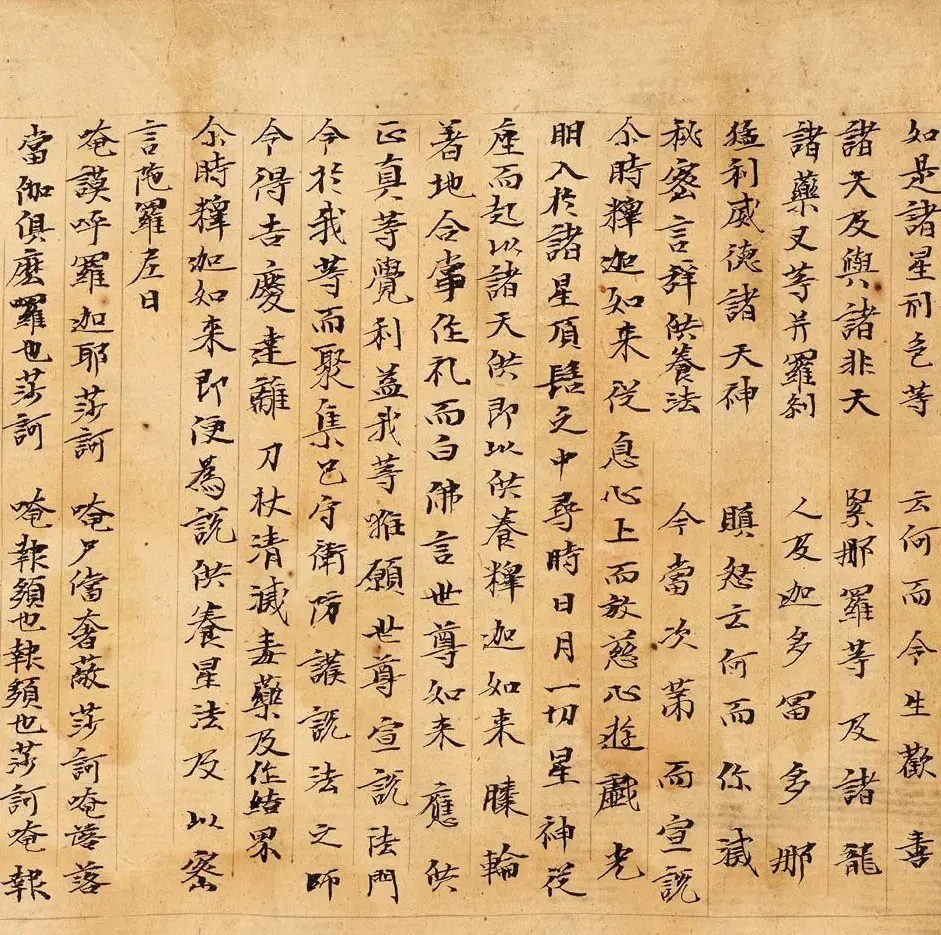 如是諸星形色等 云何而令生歡喜
諸天及與諸非天 緊那羅等及諸龍
諸藥叉等并羅剎 人及迦多冨多那
猛利威德諸天神 瞋怒云何而作滅
秘密言辞供養法 今當次第而宣説
尒時釋迦如来從息心上而放慈心遊戲光
明入於諸星頂髻之中尋時日月一切星神從
座而起以諸天供即以供養釋迦如来膝輪
著地合掌作礼而白佛言世尊如来應供
正真等覺利益我等唯願世尊宣説法門
令於我等而聚集已守衛防護説法之師
令得吉慶遠離刀杖清滅毒藥及作結界
尒時釋迦如来即便為説供養星法及以密
言陁羅尼曰
唵謨呼羅迦耶莎訶 唵尸儅奢蔽莎訶唵落
當伽俱麼囉也莎訶 唵報頞也報頞也莎訶唵報